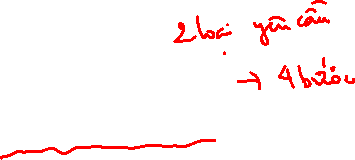 2 loại yêu cầu
→ 4 bước